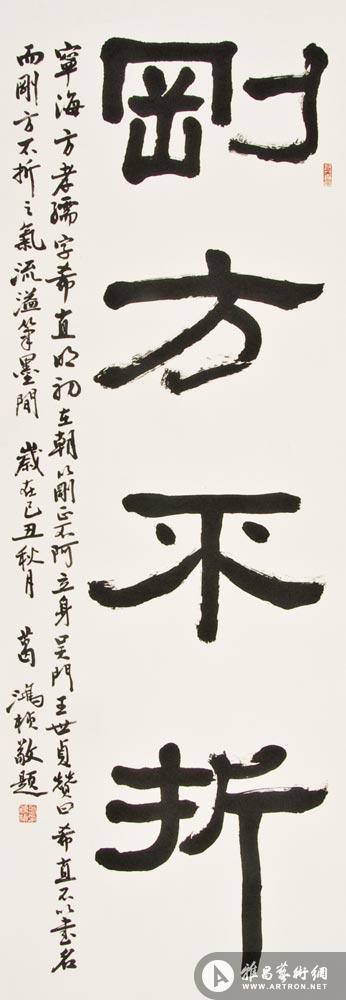 剛方不折
寧海方孝孺字希直明初立朝以剛正不阿立身吴門王世貞贊曰希直不以書名
而剛方不折之氣流溢筆墨間 歲在己丑秋月 葛鴻楨敬題
雅昌藝術網
WWW.ARTRON.NET